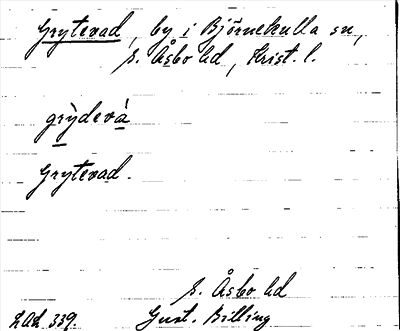 Grytevad, by i Björnekulla sn,
S. Åsbo hd, Krist. l.
grỳdevá
Grytevad.
S. Åsbo hd
LAL 339. Gust. Billing